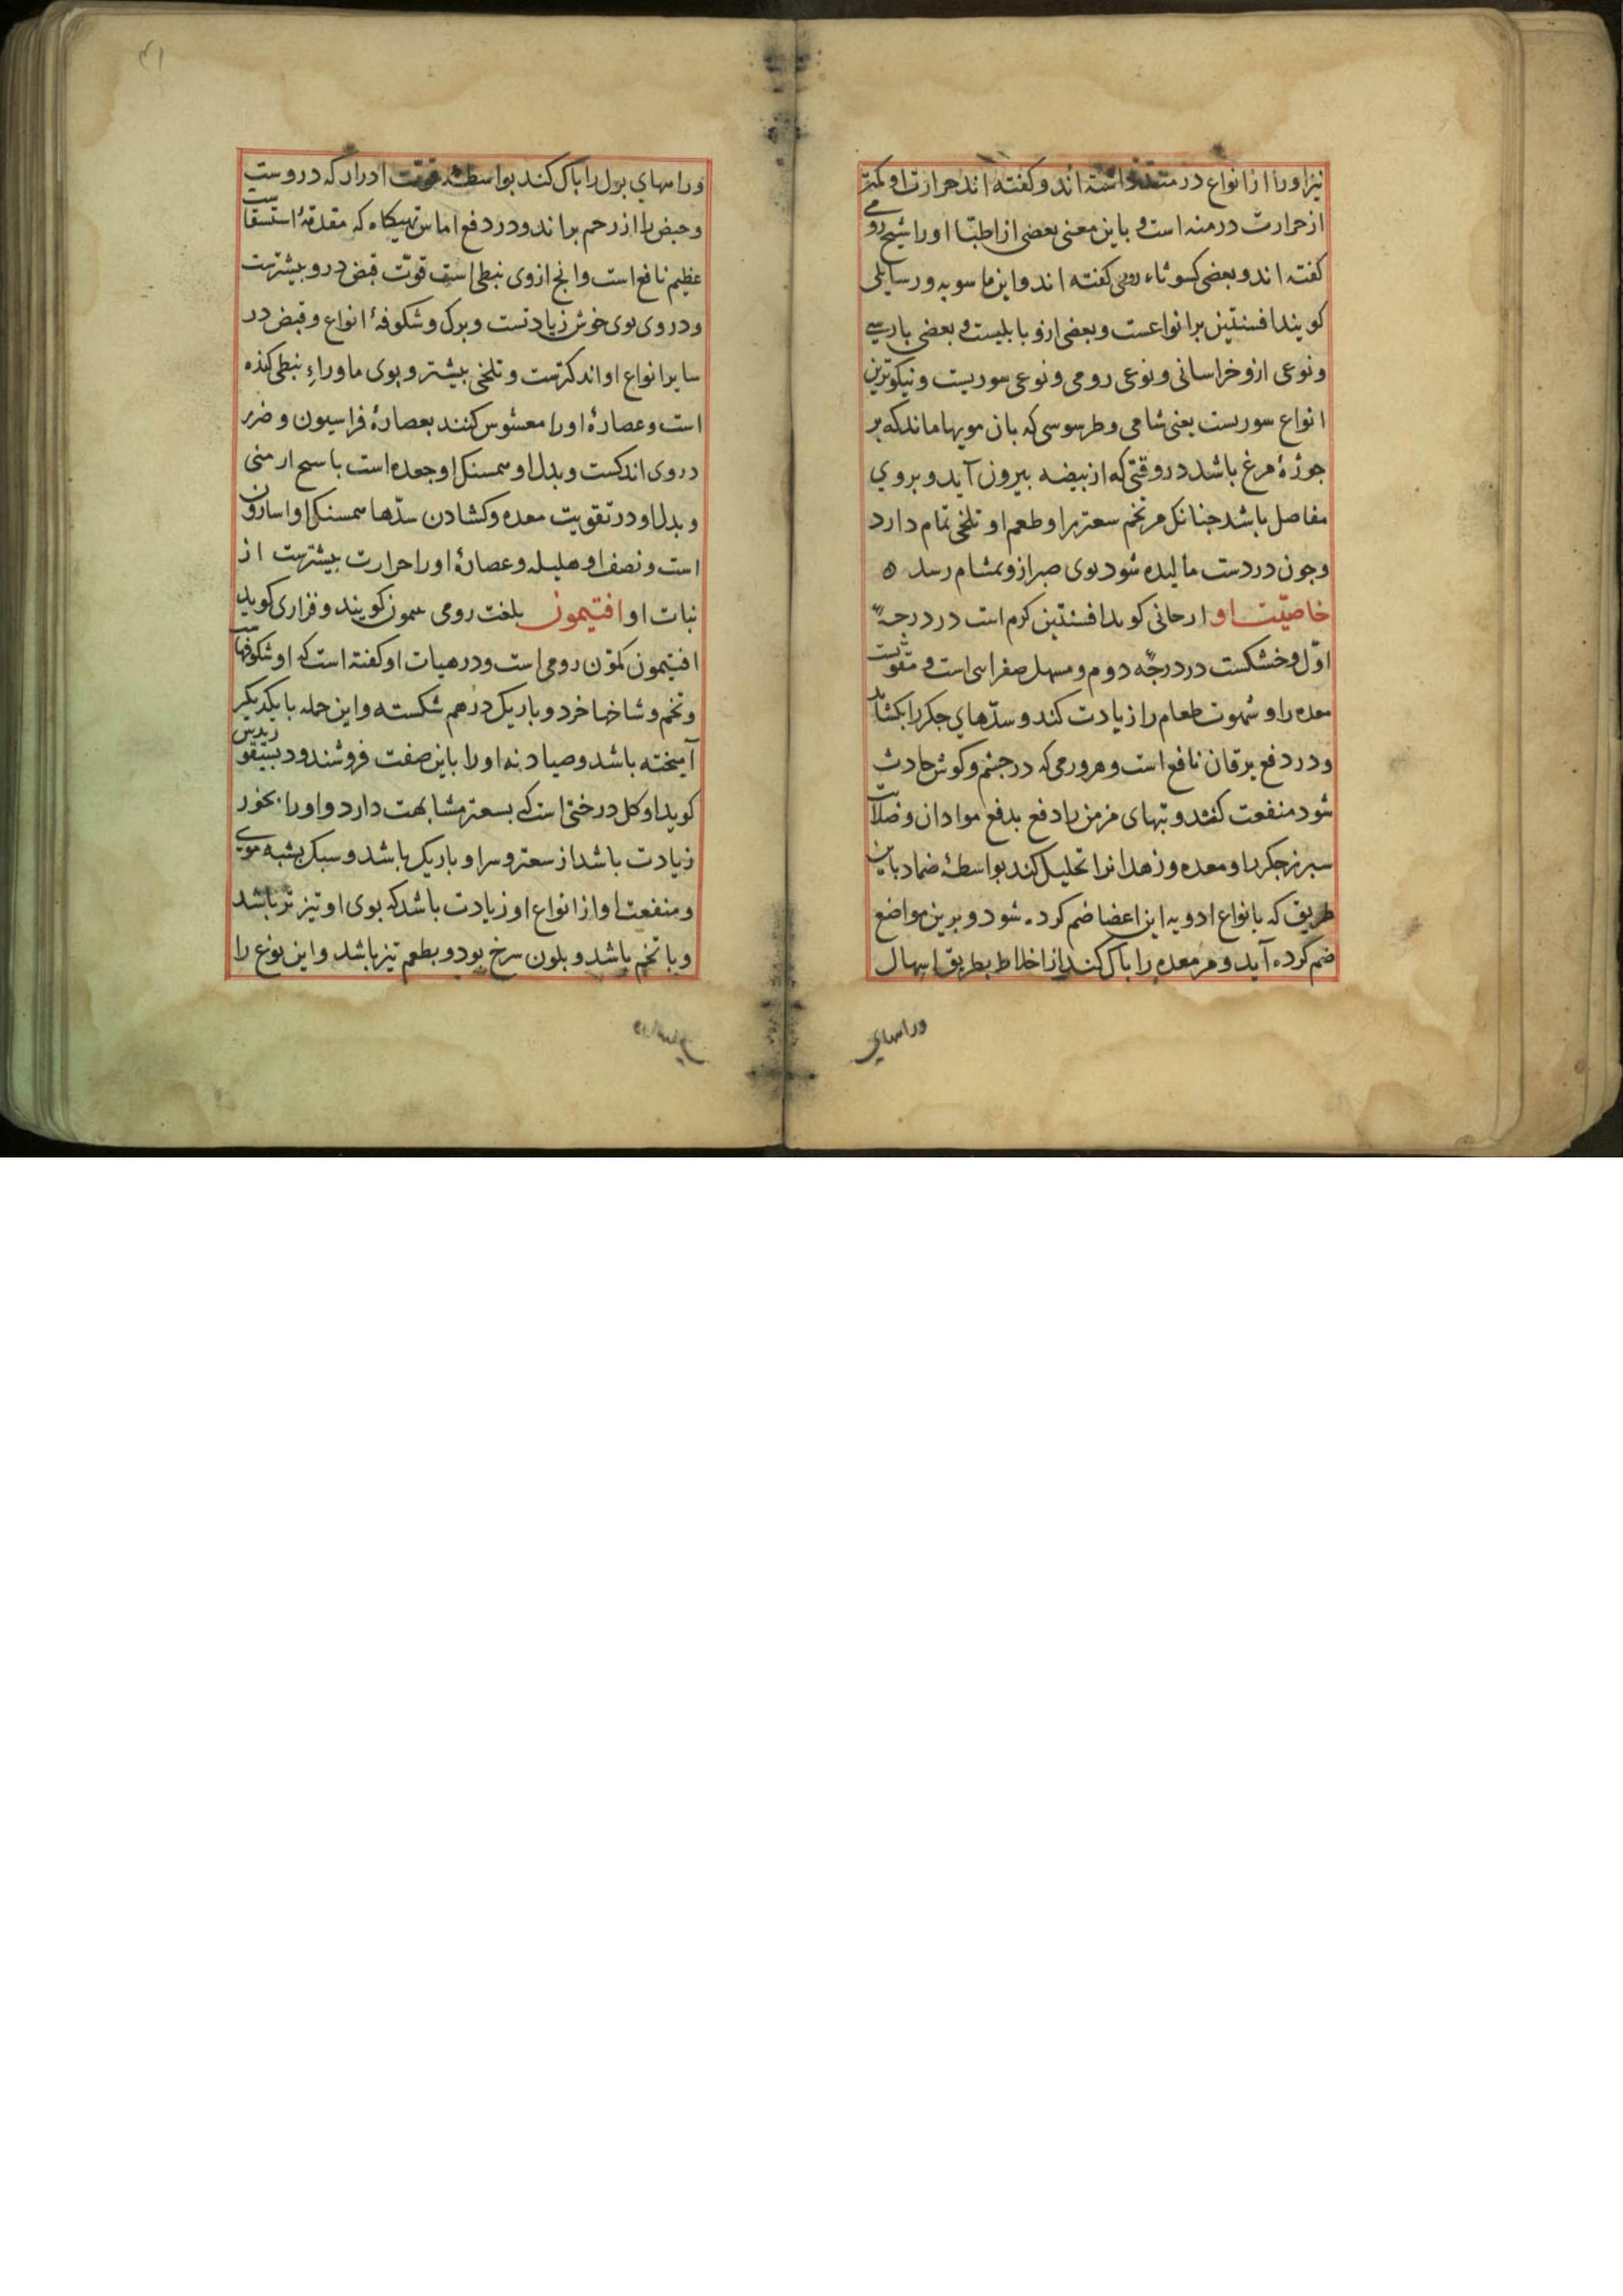 نیز اورا از انواع درمنه دانسته اند و کفته اند حرارت او کمتر
از حرارت درمنه است و باین معنی بعضی از اطبّا اورا شیح رومی
کفته اند و بعضی کسوثاء رومی کفته اند و ابن ماسویه و رسایلی
کویند افسنتین بر انواعست و بعضی ازو بابلیست و بعضی پارسی
و نوعی ازو خراسانی و نوعی رومی و نوعی سوریست و نیکوترین
انواع سوریست یعنی شامی و طرسوسی که بان مویها ماند که بر
جوژهٔ مرغ باشد در وقتی که از بیضه بیرون آید و بروی
مفاصل باشد جنانک مر تخم سعتر را و طعم او تلخی تمام دارد
وجون در دست مالیده شود بوی صبر ازو بمشام رسد ه
خاصیّت او ارجانی کوید افسنتین کرم است در درجهٔ
اوّل و خشکست در درجهٔ دوم و مسهل صفراست و مقویست
معده را و شهوت طعام را زیادت کند و سدّهای جکر را بکشاید
و در دفع یرقان نافع است و هر ورمی که در جشم و کوش حادث
شود منفعت کند و تبهای مزمن را دفع بدفع مواد ان و صلابت
سبرز جکر را و معده و زهدانرا تحلیل کند بواسطهٔ ضماد باین
طریق که بانواع ادویه این اعضا ضم کرده شود و برین مواضع
ضم کرده آید و مر معده را باک کند از اخلاط بطریق اسهال
وراههای
وراههای بول را باک کند بواسطهٔ قوّت ادرار که دروست
و حیض را از رحم براند و در دفع اماس تهیکاه که مقدمهٔ استسقاست
عظیم نافع است وانج ازوی نبطی است قوّت قبض درو بیشترست
و در وی بوی خوش زیادتست و برک و شکوفهٔ انواع و قبض در
سایر انواع او اندکترست و تلخی بیشتر و بوی ماوراءِ نبطی کنده
است و عصارهٔ اورا مغشوش کنند بعصارهٔ فراسیون و ضرر
در وی اندکست و بدل او همسنک او جعده است با شیح ارمنی
و بدل او در تقویت معده و کشادن سدّها همسنک او اسارون
است و نصف او هلیله و عصارهٔ اورا حرارت بیشترست از
نبات او افتیمون بلغت رومی کویند و فزاری کوید
افتیمون کمّون رومی است و در هیات او کفته است که او شکوفهاست
و تخم و شاخها خرد و باریک درهم شکسته و این جمله با یکدیکر
آمیخته باشد و صیادنه اورا باین صفت فروشند و دیسیقوریدس
کوید او کل درختی است که بسعتر مشابهت دارد و اورا بخور
زیادت باشد از سعتر و سر او باریک باشد و سبک بشبه موی
و منفعت او از انواع او زیادت باشد که بوی او تیز تر باشد
و با تخم باشد و بلون سرخ بود و بطعم تیز باشد و این نوع را